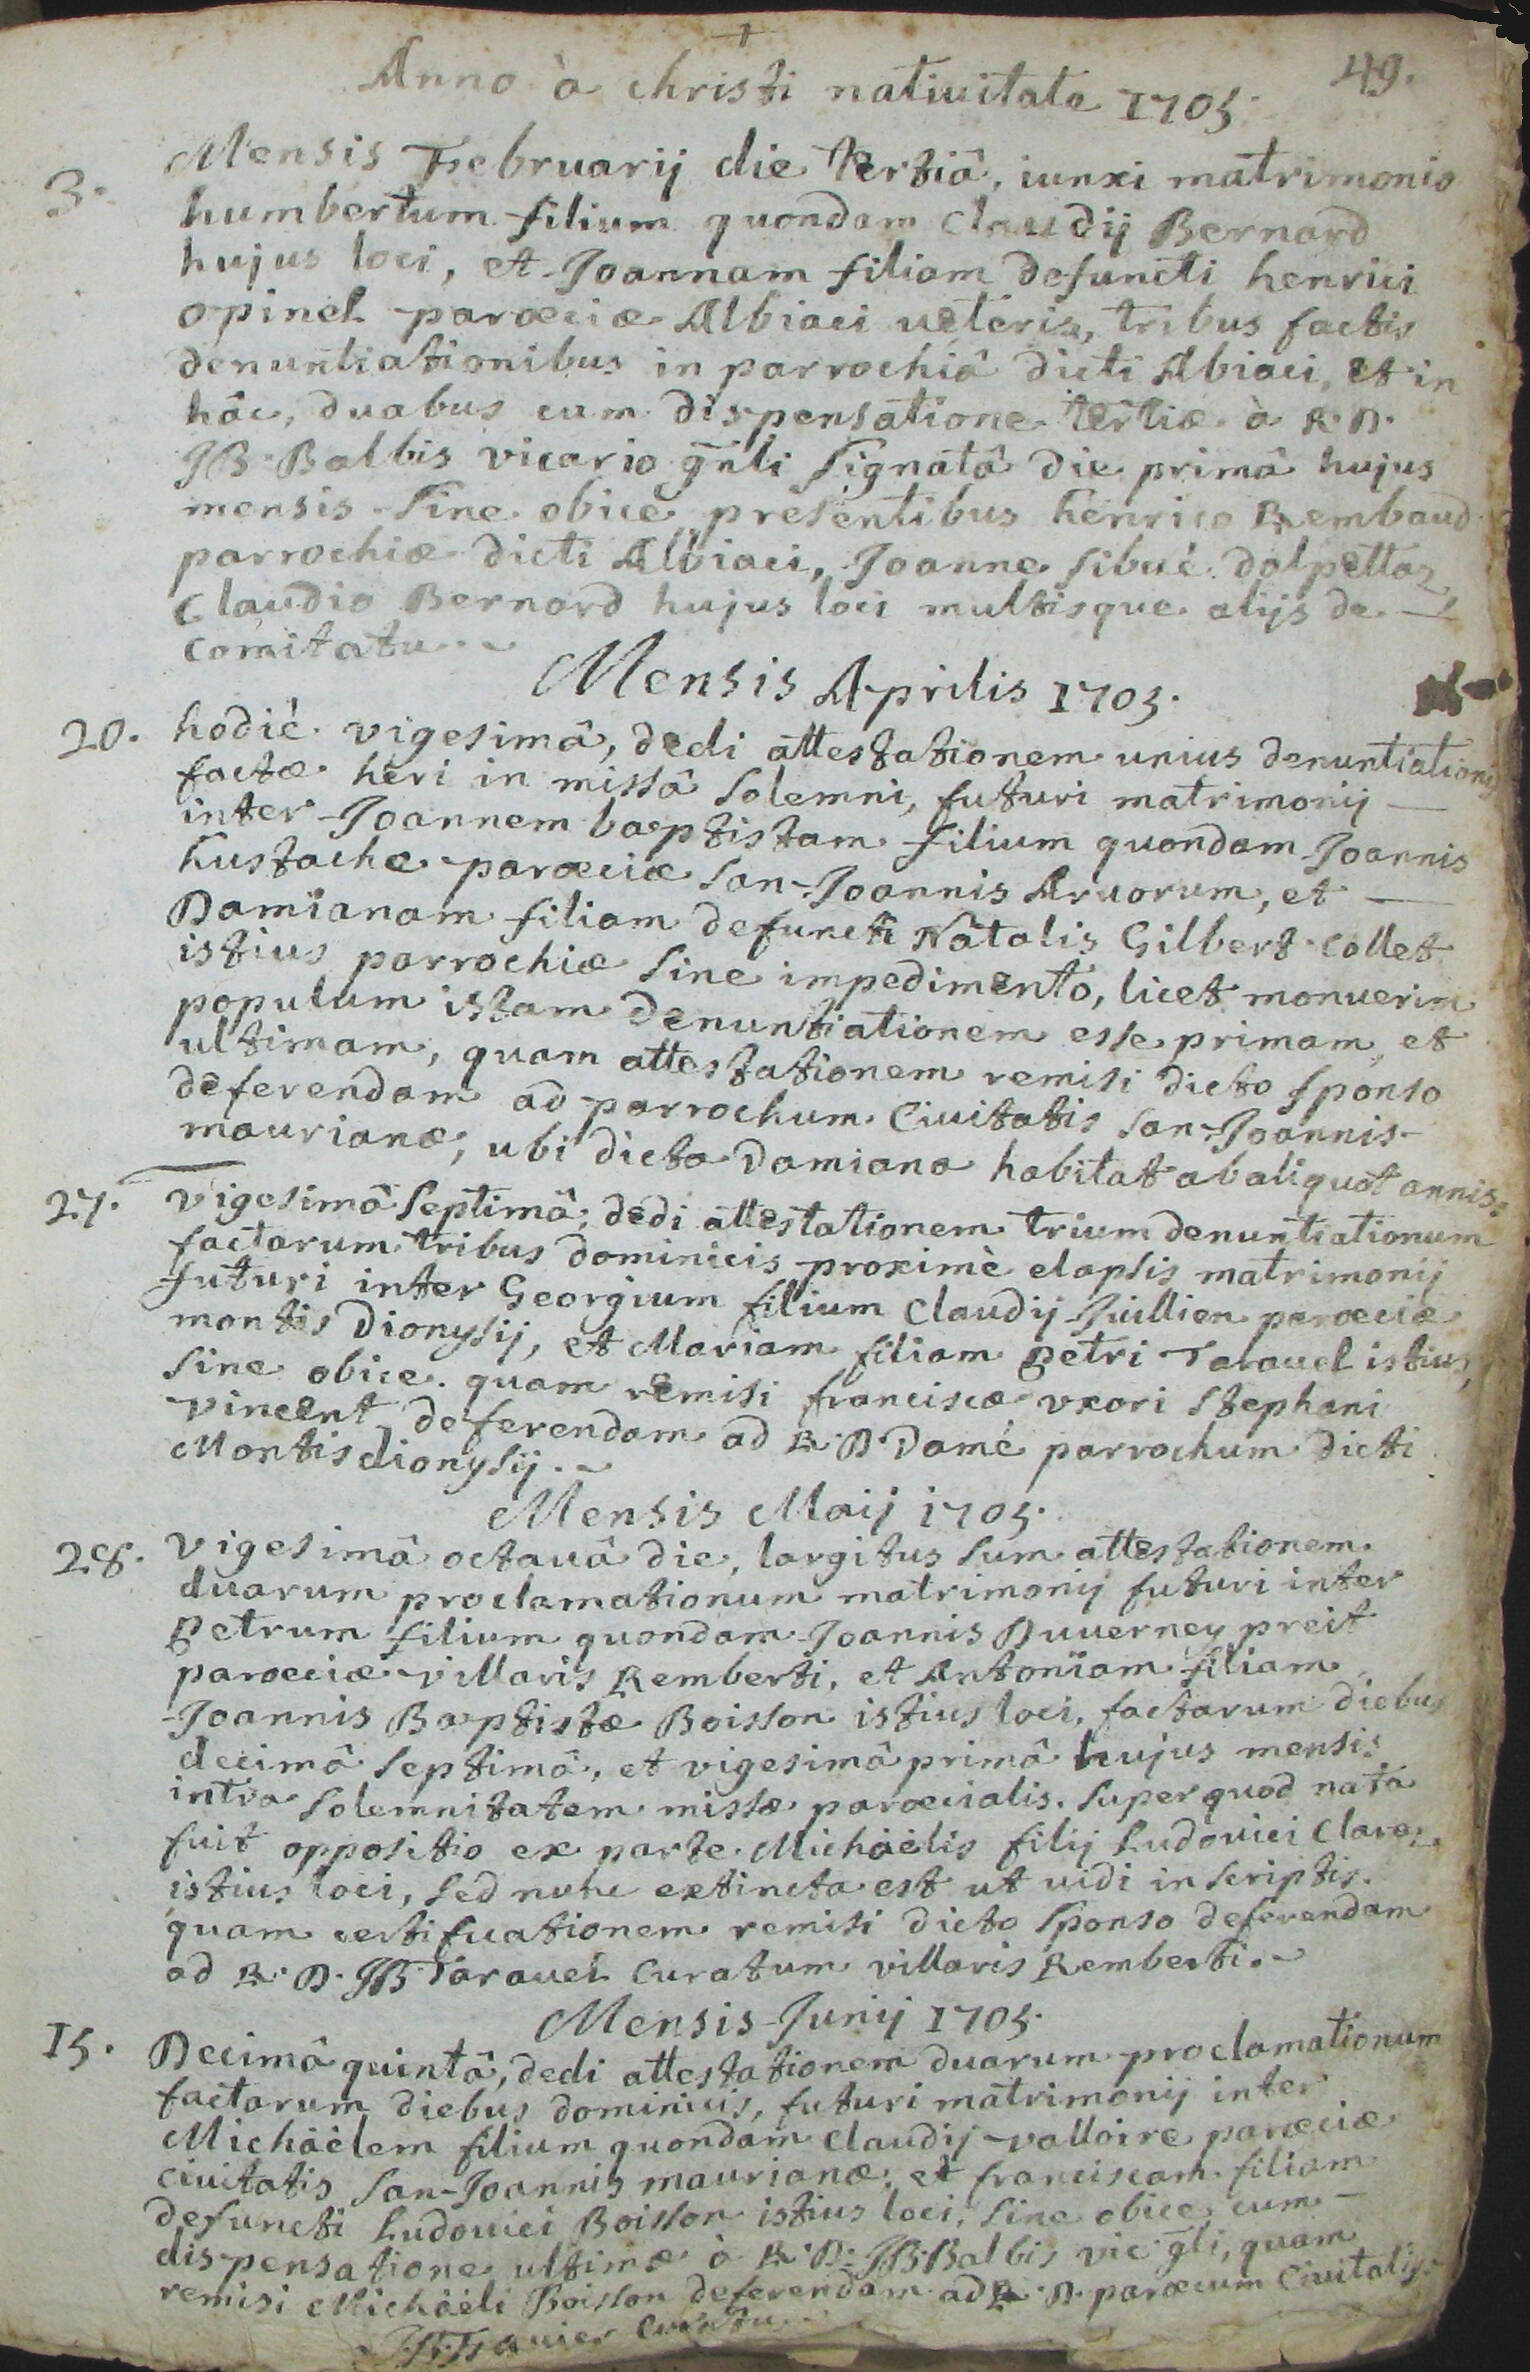 Anno à christi natiuitate 1705.
49.
3. Mensis Februarij die tertiâ, iunxi matrimonio
humbertum filium quondam Claudij Bernard
hujus loci, et Joannam filiam defuncti henrici
opinel parœciæ Albiaci ueteris, tribus factis
denuntiationibus in parrochiâ dicti Albiaci, et in
hâc, duabus cum dispensatione tertiæ à R. D.
JB Balbis vicario gñli signatâ die primâ hujus
mensis sine obice presentibus henrico Rembaud
parrochiæ dicti Albiaci, Joanne sibué dalpettaz
Claudio Bernard hujus loci multisque alijs de
comitatu.
Mensis Aprilis 1705.
20. hodiè vigesimâ, dedi attestationem unius denuntiationis
factæ heri in missâ solemni, futuri matrimonij
inter Joannem baptistam filium quondam Joannis
Eustache parœciæ San-Joannis Aruorum, et
Damianam filiam defuncti Natalis Gilbert-Collet
istius parrochiæ sine impedimento, licet monuerim
populum istam denuntiationem esse primam, et
ultimam, quam attestationem remisi dicto sponso
deferendam ad parrochum Ciuitatis San-Joannis-
maurianæ, ubi dicta Damiana habitat ab aliquot annis.
27. Vigesimâ septimâ, dedi attestationem trium denuntiationum
factarum tribus dominicis proximè elapsis matrimonij
futuri inter Georgium filium Claudij Juillien parœciæ
montis Dionysij, et Mariam filiam Petri Tarauel istius,
sine obice. quam remisi franciscæ vxori Stephani
vincent deferendam ad R. D. Damé parrochum dicti
Montisdionysij.
Mensis Maij 1705.
28. Vigesimâ octauâ die, largitus sum attestationem
duarum proclamationum matrimonij futuri inter
Petrum filium quondam Joannis Duuerney preit
parœciæ villaris Remberti, et Antoniam filiam
Joannis Baptistæ Boisson istius loci, factarum diebus
decimâ septimâ, et vigesimâ primâ hujus mensis
intra solemnitatem missæ parœcialis. super quod nata
fuit oppositio ex parte Michaëlis filij Ludouici Clare
istius loci, sed nunc extincta est ut uidi in scriptis.
quam certificationem remisi dicto sponso deferendam
ad R. D. JB Tarauel Curatum villaris Remberti.
Mensis Junij 1705.
15. Decimâ quintâ, dedi attestationem duarum proclamationum
factarum diebus dominicis, futuri matrimonij inter
Michaëlem filium quondam Claudij valloire parœciæ
ciuitatis San-Joannis maurianæ, et franciscam filiam
defuncti Ludouici Boisson istius loci, sine obice cum
dispensatione ultimæ à R. D. JB Balbis vic gli, quam
remisi Michaëli Boisson deferendam ad R. D. parœcum Ciuitatis.